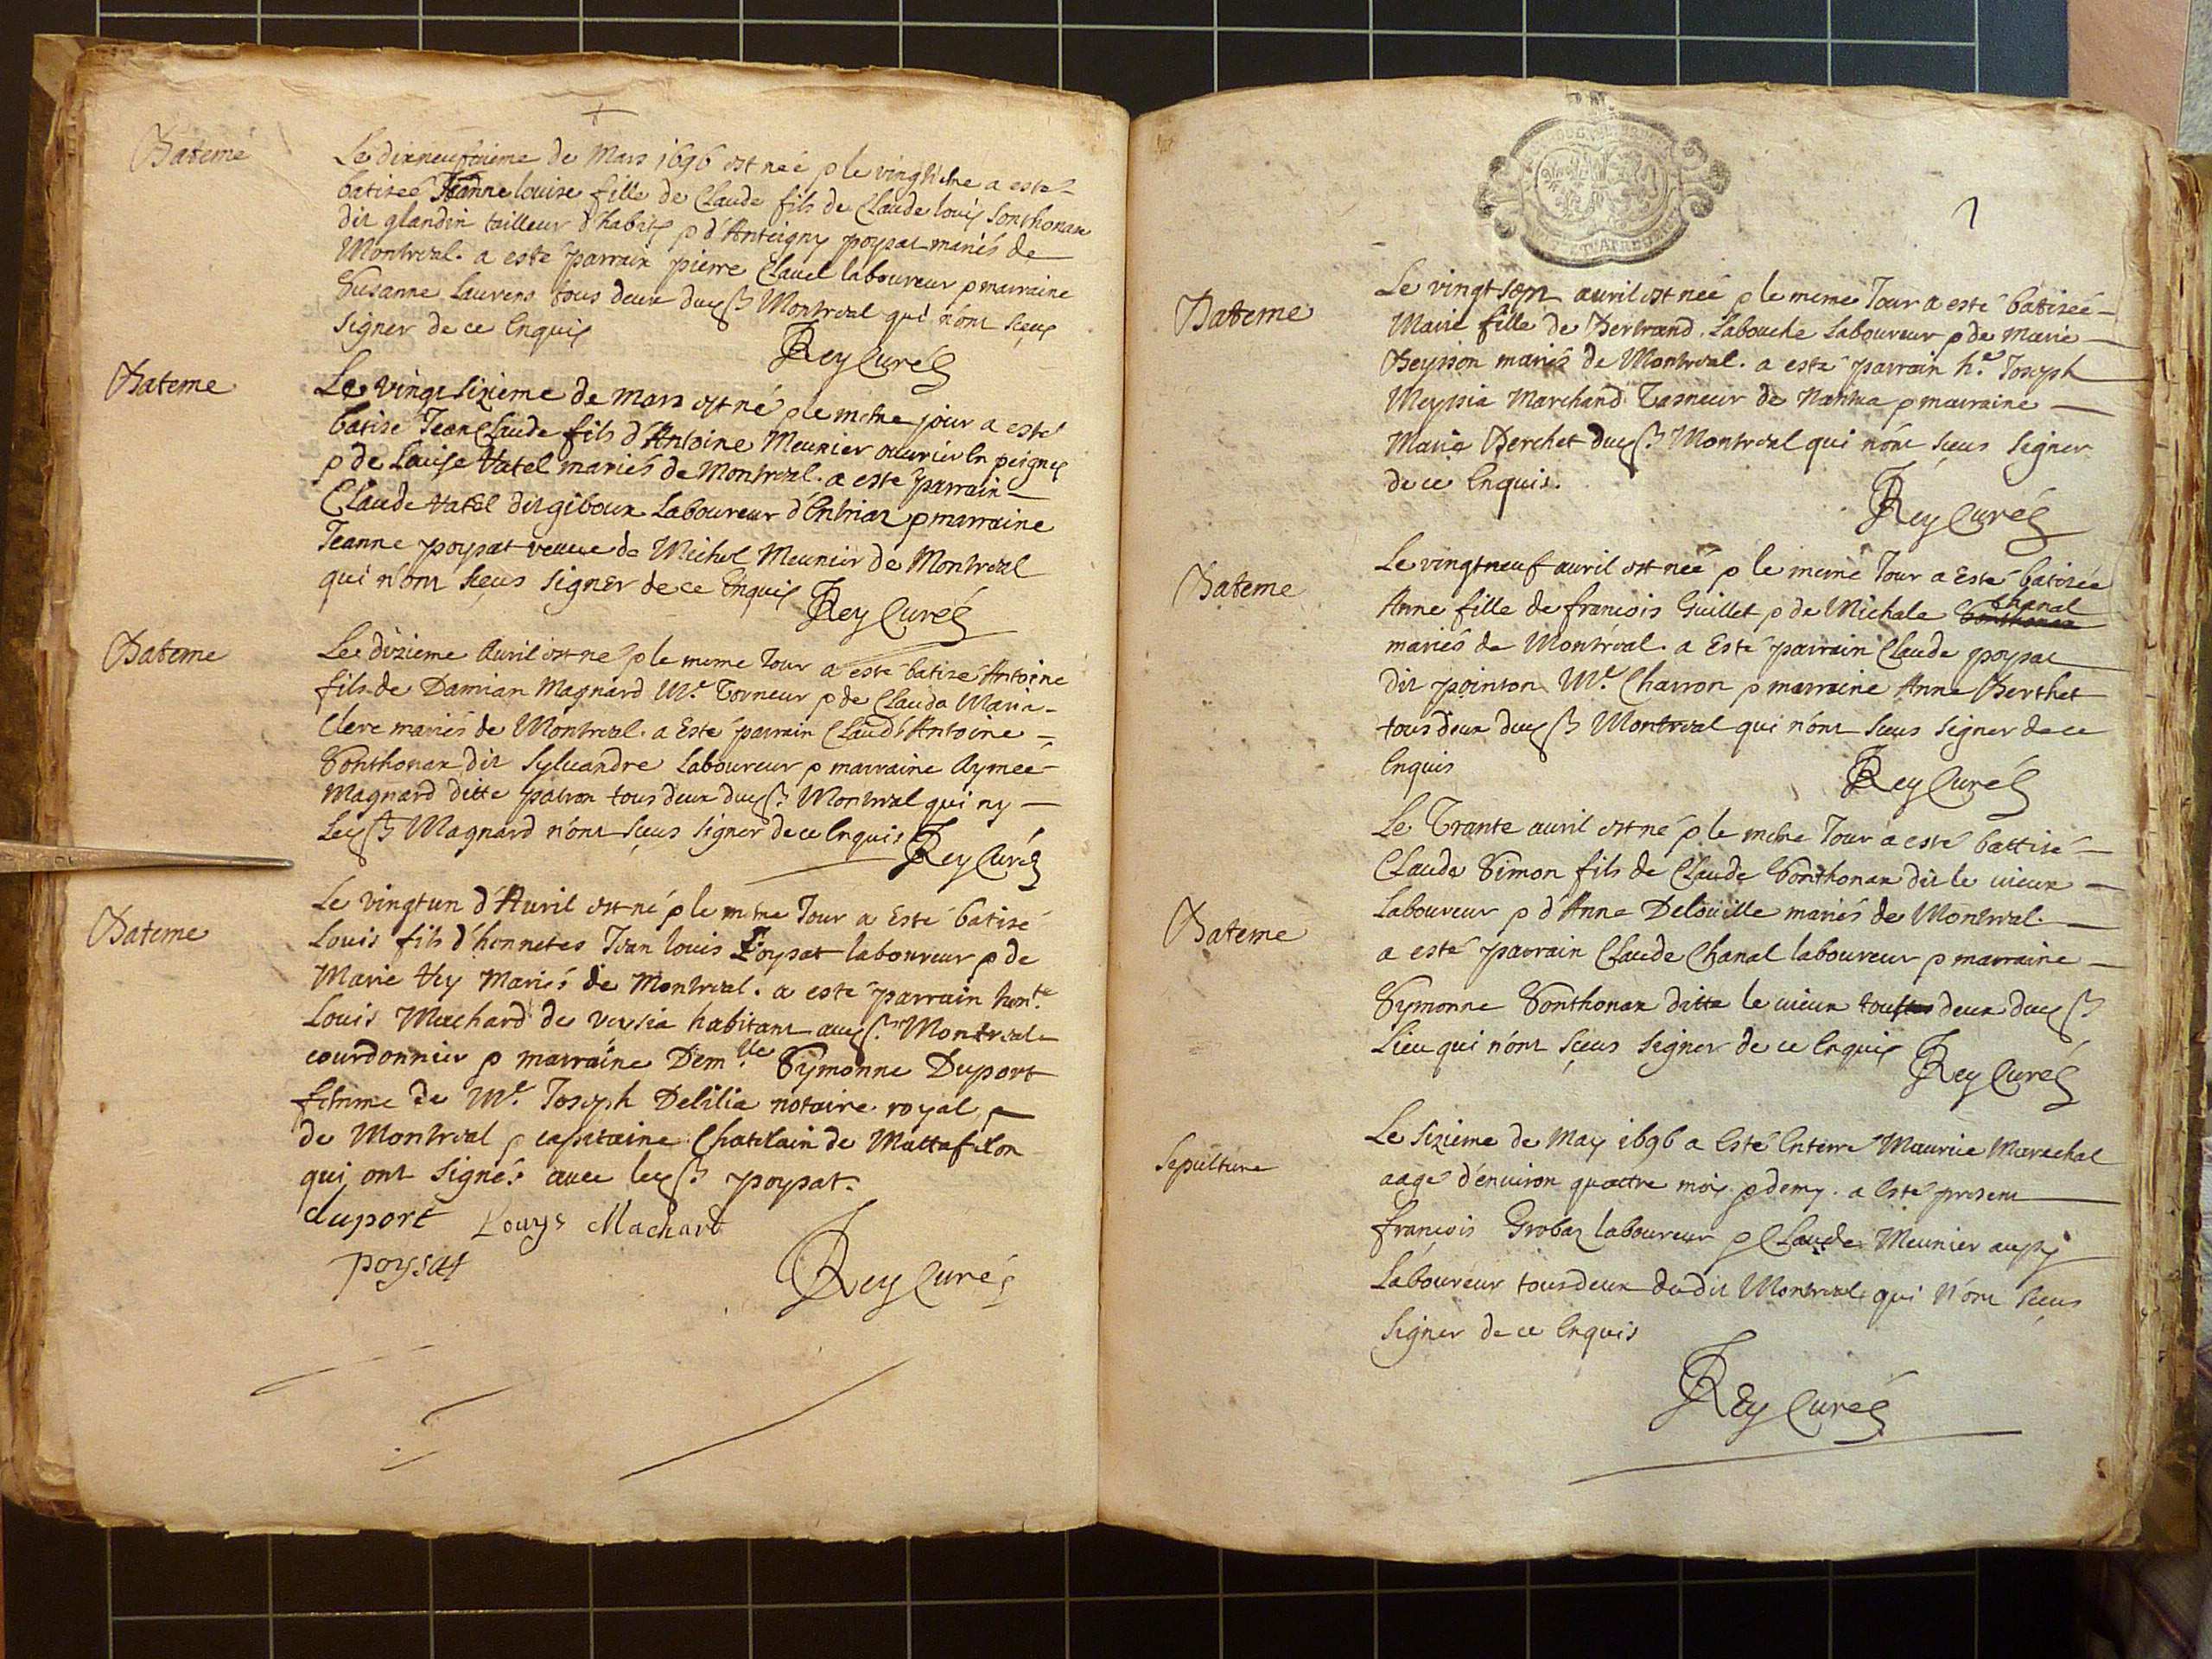 Bateme
Le dixneufvieme de Mars 1696 est neé & le vingtieme a esté
batiseé Jeanne louise fille de Claude fils de Claude louis Sonthonax
dit glandin tailleur d'habits & d'Anteigny poysat mariés de
Montreal. a esté parrain pierre Clavel laboureur & marraine
Susanne Laurens tous deux dud Montreal qui n'ont sceus
signer de ce Enquis
Rey Curé
Bateme
Le vingt sixieme de mars est né & le meme jour a esté
batisé Jean Claude fils d'Antoine Meunier ouvrier En peignes
& de Louise Vatel mariés de Montreal. a esté parrain
Claude Vatel dit giboux Laboureur d'Entriaz & marraine
Jeanne poysat veuve de Michel Meunier de Montreal
qui n'ont sceus signer de ce Enquis Rey Curé
Bateme
Le dizieme Avril est né & le meme Jour a esté batisé Antoine
fils de Damian Magnard Me. Torneur & de Clauda Marie
Clerc mariés de Montreal. a Esté parrain Claud'Antoine
Sonthonax dit Sylvandre Laboureur & marraine Aymeé
Magnard ditte patron tous deux dud. Montreal qui ny
led Magnard n'ont sceus signer de ce Enquis Rey Curé
Bateme
Le vingt un d'Avril est né & le meme Jour a Esté batisé
Louis fils d'honnetes Jean louis Poysat laboureur & de
Marie Vey Mariés de Montreal. a esté parrain honte
Louis Machard de Versia habitant aud. Montreal
courdonnier & marraine Demlle Symonne Duport
femme de Me. Joseph Delilia notaire royal
de Montreal & capitaine Chatelain de Mattafelon
qui ont signés avec led. poysat.
duport Louys Machard
poysat
Rey Curé
Bateme
Le vingt sept avril est neé & le meme Jour a esté batiseé
Marie fille de Bertrand Labouche Laboureur & de Marie
Beysson mariés de Montreal. a esté parrain he. Joseph
Meyssia Marchand Tasneur de Nantua & marraine
Marie Berchet dud. Montreal qui n'ont sceus signer
de ce Enquis.
Rey Curé
Bateme
Le vingt neuf avril est neé & le meme Jour a Esté batiseé
Anne fille de francois Guillet & de Michale Sonthonax Chanal
mariés de Montreal. a Esté parrain Claude poysat
dit pointon Me. Charron & marraine Anne Berthet
tous deux dud Montreal qui n'ont sceus signer de ce
Enquis
Rey Curé
Bateme
Le Trante avril est né & le meme Jour a esté battisé
Claude Simon fils de Claude Sonthonax dit le vieux
Laboureur & d'Anne Delouille mariés de Montreal.
a esté parrain Claude Chanal laboureur & marraine
Symonne Sonthonax ditte le vieux tous deux dud
Lieu qui n'ont sceus signer de ce Enquis
Rey Curé
Sepulture
Le sizieme de May 1696 a Esté Enterré Maurice Marechal
aagé d'environ quattre mois & demy. a Esté present
francois Grobaz laboureur & Claude Meunier aussy
Laboureur tous deux dudit Montreal qui n'ont sceus
signer de ce Enquis
Rey Curé